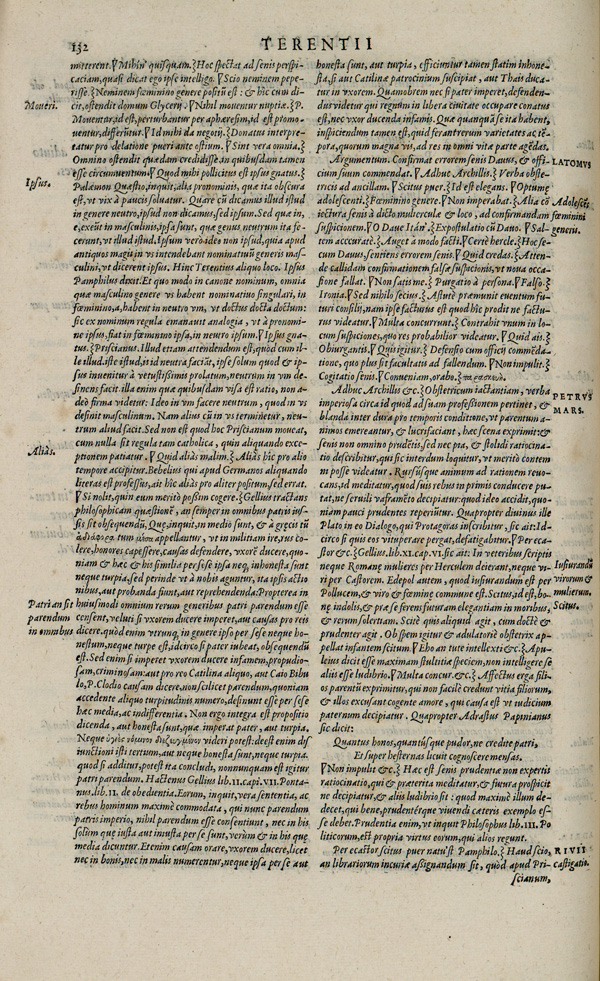 132
TERENTII
mitterent. ∇Mihin' quisquam.} Hoc spectat ad senis perspi-
caciam, quasi dicat ego ipse intelligo. ∇Scio neminem pepe-
risse.} Neminem fœminino genere positū est: & hîc cum di-
Moueri.
cit, ostendit domum Glycerij. ∇Nihil mouentur nuptiæ.} P.
Mouentur, id est, perturbantur per aphæresim, id est promo-
uentur, differūtur. ∇Id mihi da negotij.} Donatus interpre-
tatur pro delatione pueri ante ostium. ∇Sint vera omnia.}
Omnino ostendit quædam credidisse, in quibusdam tamen
esse circumuentum. ∇Quod mihi pollicitus est ipsus gnatus.}
Ipsus.
Palæmon Quæstio, inquit, alia pronominis, quæ ita obscura
est, vt vix à paucis soluatur. Quare cū dicamus illud istud
in genere neutro, ipsud non dicamus, sed ipsum. Sed quæ in,
e, exeūt in masculinis, ipsa sunt, quæ genus neutrum ita fe-
cerunt, vt illud istud. Ipsum verò ideo non ipsud, quia apud
antiquos magis in vs intendebant nominatiuū generis mas-
culini, vt dicerent ipsus. Hinc Terentius aliquo loco. Ipsus
Pamphilus dixit. Et quo modo in canone nominum, omnia
quæ masculino genere vs habent nominatiuo singulari, in
fœminino, a, habent in neutro vm, vt doctus docta doctum:
sic ex nominum regula emanauit analogia, vt à pronomi-
ne ipsus, fiat in fœminino ipsa, in neutro ipsum. ∇Ipsus gna-
tus.} Priscianus. Illud etiam attendendum est, quòd cum il-
le illud, iste istud, is id neutra faciāt, ipse solum quod & ip-
sus inuenitur à vetustissimis prolatum, neutrum in vm de-
sinens facit illa enim quæ quibusdam visa est ratio, non a-
deò firma videtur: Ideo in vm facere neutrum, quod in vs
desinit masculinum. Nam alius cū in vs terminetur, neu-
trum aliud facit. Sed non est quod hoc Priscianum moueat,
cum nulla sit regula tam catholica, quin aliquando exce-
Aliàs.
ptionem patiatur. ∇Quid aliàs malim.} Aliàs hîc pro alio
tempore accipitur. Bebelius qui apud Germanos aliquando
literas est professus, ait hîc aliàs pro aliter positum, sed errat.
∇Si nolit, quin eum meritò possim cogere.} Gellius tractans
philosophicam quæstionē, an semper in omnibus patris ius-
sis sit obsequendū, Quę, inquit, in medio sunt, & à grecis tū
ἀδιάφορα tum μέσα appellantur, vt in militiam ire, rus co-
lere, honores capessere, causas defendere, vxorē ducere, quo-
niam & hæc & his similia per se ipsa neq, inhonesta sunt
neque turpia, sed perinde vt à nobis aguntur, ita ipsis actio
nibus, aut probanda sunt, aut reprehendenda. Propterea in
Patri an sit
parendum
in omnibus
huiusmodi omnium rerum generibus patri parendum esse
censent, velut si vxorem ducere imperet, aut causas pro reis
dicere, quòd enim vtrunq, in genere ipso per sese neque ho-
nestum, neque turpe est, idcirco si pater iubeat, obsequendū
est. Sed enim si imperet vxorem ducere infamem, propudio-
sam, criminosam: aut pro reo Catilina aliquo, aut Caio Bibu
lo, P. Clodio causam dicere, non scilicet parendum, quoniam
accedente aliquo turpitudinis numero, desinunt esse per sese
hæc media, ac indifferentia. Non ergo integra est propositio
dicenda, aut honesta sunt, quæ imperat pater, aut turpia.
Neque videri potest: deest enim dis
iunctioni isti tertium, aut neque honesta sunt, neque turpia.
quod si additur, potest ita concludi, nonnunquam est igitur
patri parendum. Hactenus Gellius lib. 11. capi. VII. Ponta-
nus. lib. 11. de obedientia. Eorum, inquit, vera sententia, ac
rebus hominum maximè commodata, qui nunc parendum
patris imperio, nihil parendum esse consentiunt, nec in his
solùm quæ iusta aut iniusta per se sunt, verùm & in his quę
media dicuntur. Etenim causam orare, vxorem ducere, licet
nec in bonis, nec in malis numerentur, neque ipsa per se aut
honesta sunt, aut turpia, efficiuntur tamen statim inhone-
sta, si aut Catilinæ patrocinium suscipiat, aut Thais duca-
tur in vxorem. Quamobrem nec si pater imperet, defenden-
dus videtur qui regnum in libera ciuitate occupare conatus
est, nec vxor ducenda infamis. Quæ quanquā se ita habent,
inspiciendum tamen est, quid ferant rerum varietates ac tē-
pora, quorum magna vis, ad res in omni vita parte agēdas.
LATOMVS
Argumentum. Confirmat errorem senis Dauus, & offi-
cium suum commendat. ∇Adhuc Archillis.} Verba obste-
tricis ad ancillam. ∇Scitus puer.} Id est elegans. ∇Optumę
Adolescēs
fœminini
generis.
adolescenti.} Fœminino genere. ∇Non imperabat.} Alia cō
iectura senis à dicto mulierculæ & loco, ad confirmandam
suspicionem. ∇O Daue Itan'.} Expostulatio cū Dauo. ∇Sal-
tem accuratè.} Auget à modo facti. ∇Certè hercle.} Hoc se-
cum Dauus, sentiens errorem senis. ∇Quid credas.} Atten-
de callidam confirmationem falsæ suspicionis, vt noua occa-
sione fallat. ∇Non satis me.} Purgatio à persona. ∇Falso.}
Ironia. ∇Sed nihilo secius.} Astutè præmunit euentum fu-
turi consilij, nam ipse facturus est quod hîc prodit ne factu-
rus videatur. ∇Multa concurrunt.} Contrahit vnum in lo-
cum suspiciones, quo res probabilior videatur. ∇Quid ais.}
Obiurgantis. ∇Qui igitur.} Defensio cum officij commēda-
tione, quo plus sit facultatis ad fallendum. ∇Non impulit.}
Cogitatio senis. ∇Conueniam, orabo.}
PETRVS
MARS.
Adhuc Archillis &c.} Obstetricum iactantiam, verba
imperiosa circa id quod ad suam professionem pertinet, &
blanda inter dura pro temporis conditione, vt parentum a-
nimos emereantur, & lucrifaciant, hæc scena exprimit: &
senis non omnino prudētis, sed nec pta, & stolidi ratiocina-
tio describitur, qui sic interdum loquitur, vt meritò contem
ni posse videatur. Rursúsque animum ad rationem reuo-
cans, id meditatur, quod suis rebus in primis conducere pu-
tat, ne seruili vaframēto decipiatur: quod ideo accidit, quo-
niam pauci prudentes reperiūtur. Quapropter diuinus ille
Plato in eo Dialogo, qui Protagoras inscribitur, sic ait: Id-
circo si quis eos vituperare pergat, defatigabitur. ∇Per eca-
stor &c.} Gellius. lib. XI. cap. VI. sic ait: In veteribus scriptis
Iusiurandū
virorum &
mulierum.
Scitus.
neque Romanę mulieres per Herculem deierant, neque vi-
ri per Castorem. Edepol autem, quod iusiurandum est per
Pollucem, & viro & fœminę commune est. Scitus, id est, bo-
nę indolis, & præ se ferens futuram elegantiam in moribus,
& rerum solertiam. Scitè quis aliquid agit, cum doctè &
prudenter agit. Ob spem igitur & adulatoriè obstetrix ap-
pellat infantem scitum. ∇Eho an tute intellexti &c.} Apu-
leius dicit esse maximam stultitiæ speciem, non intelligere se
aliis esse ludibrio. ∇Multa concur. &c.} Affectus erga fili-
os parentū exprimitur, qui non facilè credunt vitia filiorum,
& illos excusant cogente amore, qui causa est vt iudicium
paternum decipiatur. Quapropter Adrastus Papinianus
sic dicit:
Quantus honos, quantúsque pudor, ne credite patri,
Et super hesternas licuit cognoscere mensas.
∇Non impulit &c.} Hæc est senis prudentiæ non expertis
ratiocinatio, qui & præterita meditatur, & futura prospicit
ne decipiatur, & aliis ludibrio sit: quod maximè illum de-
decet, qui bene, prudentérque viuendi cæteris exemplo es-
se debet. Prudentia enim, vt inquit Philosophus lib. III. Po
liticorum, est propria virtus eorum, qui alios regunt.
RIVII
castigatio.
Per ecastor scitus puer natu'st Pamphilo.} Haud scio,
an librariorum incuriæ assignandum sit, quòd apud Pri-
scianum,